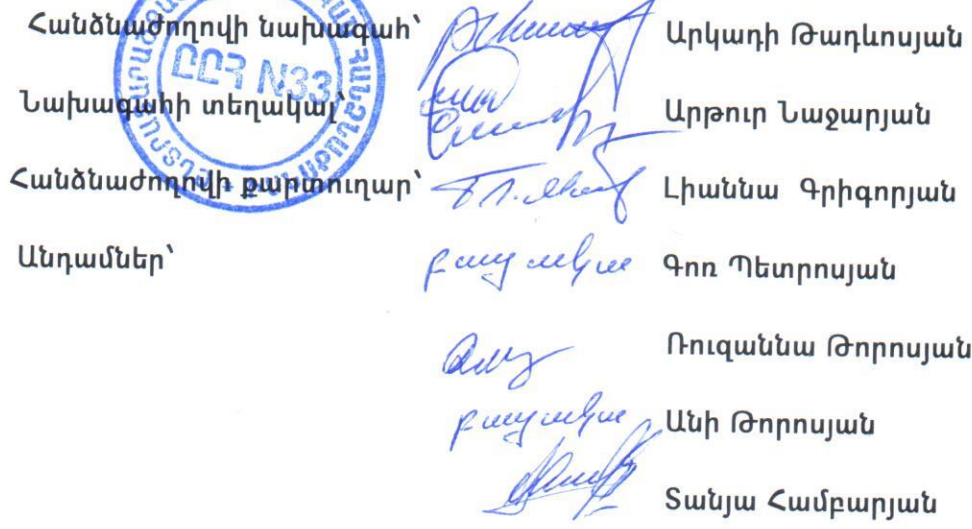 Հանձնաժողովի նախագահ՝ Արկադի Թադևոսյան
ԸԸՀ N33
Նախագահի տեղակալ՝ Արթուր Նաջարյան
Հանձնաժողովի քարտուղար՝ Լիաննա Գրիգորյան
Անդամներ՝ բացակա Գոռ Պետրոսյան
Ռուզաննա Թորոսյան
բացակա Անի Թորոսյան
Տանյա Համբարյան